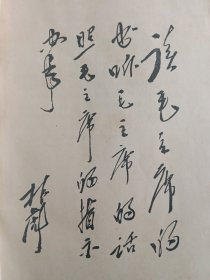 读毛主席的
书，听毛主席的话，
照毛主席的指示
办事
林彪